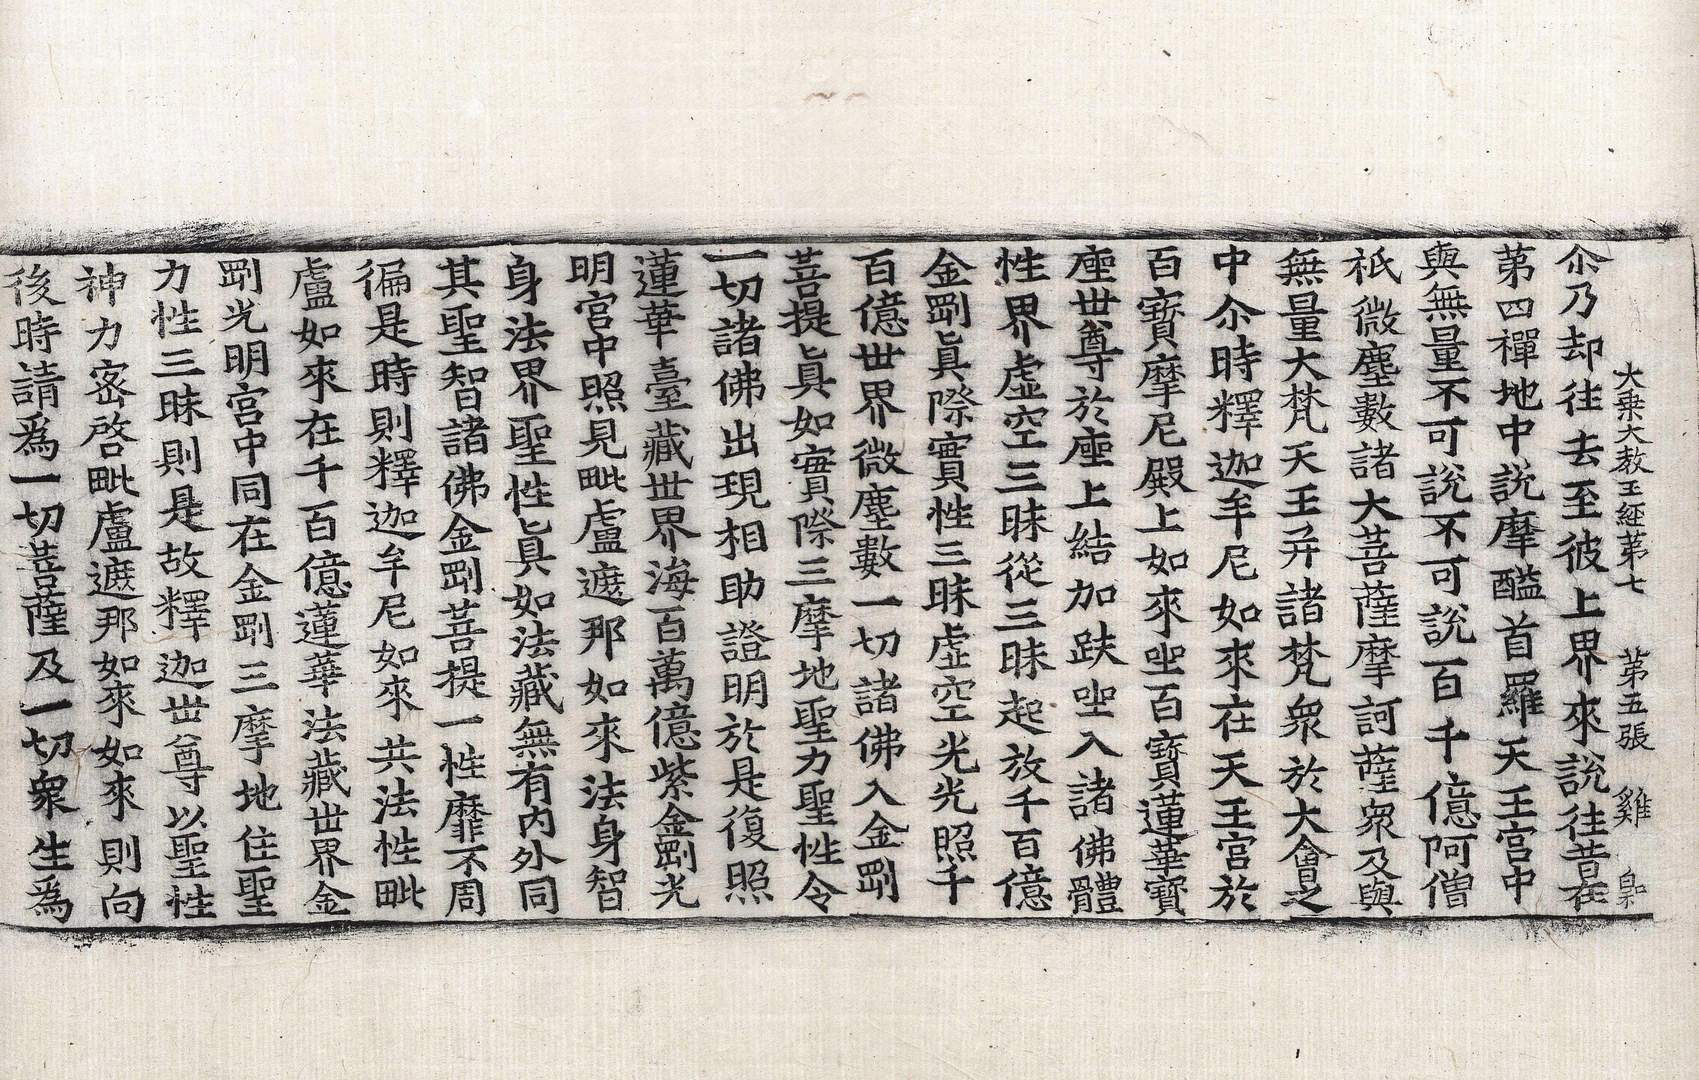 大乗大教王經第七　第五張　雞　㮚
尒乃却往去至彼上界來說往昔在
第四禪地中說摩醯首羅天王宮中
與無量不可說不可說百千億阿僧
祇微塵數諸大菩薩摩訶薩衆及與
無量大梵天王并諸梵衆於大會之
中尒時釋迦牟尼如來在天王宮於
百寶摩尼殿上如來坐百寶蓮華寶
座世尊於座上結加趺坐入諸佛體
性界虛空三昧從三昧起放千百億
金剛眞際實性三昧虛空光光照千
百億世界微塵數一切諸佛入金剛
菩提眞如實際三摩地聖力聖性令
一切諸佛出現相助證明於是復照
蓮華臺藏世界海百萬億紫金剛光
明宮中照見毗盧遮那如來法身智
身法界聖性眞如法藏無有內外同
其聖智諸佛金剛菩提一性靡不周
徧是時則釋迦牟尼如來共法性毗
盧如來在千百億蓮華法藏世界金
剛光明宮中同在金剛三摩地住聖
力性三昧則是故釋迦世尊以聖性
神力密啓毗盧遮那如來如來則向
後時請爲一切菩薩及一切衆生爲